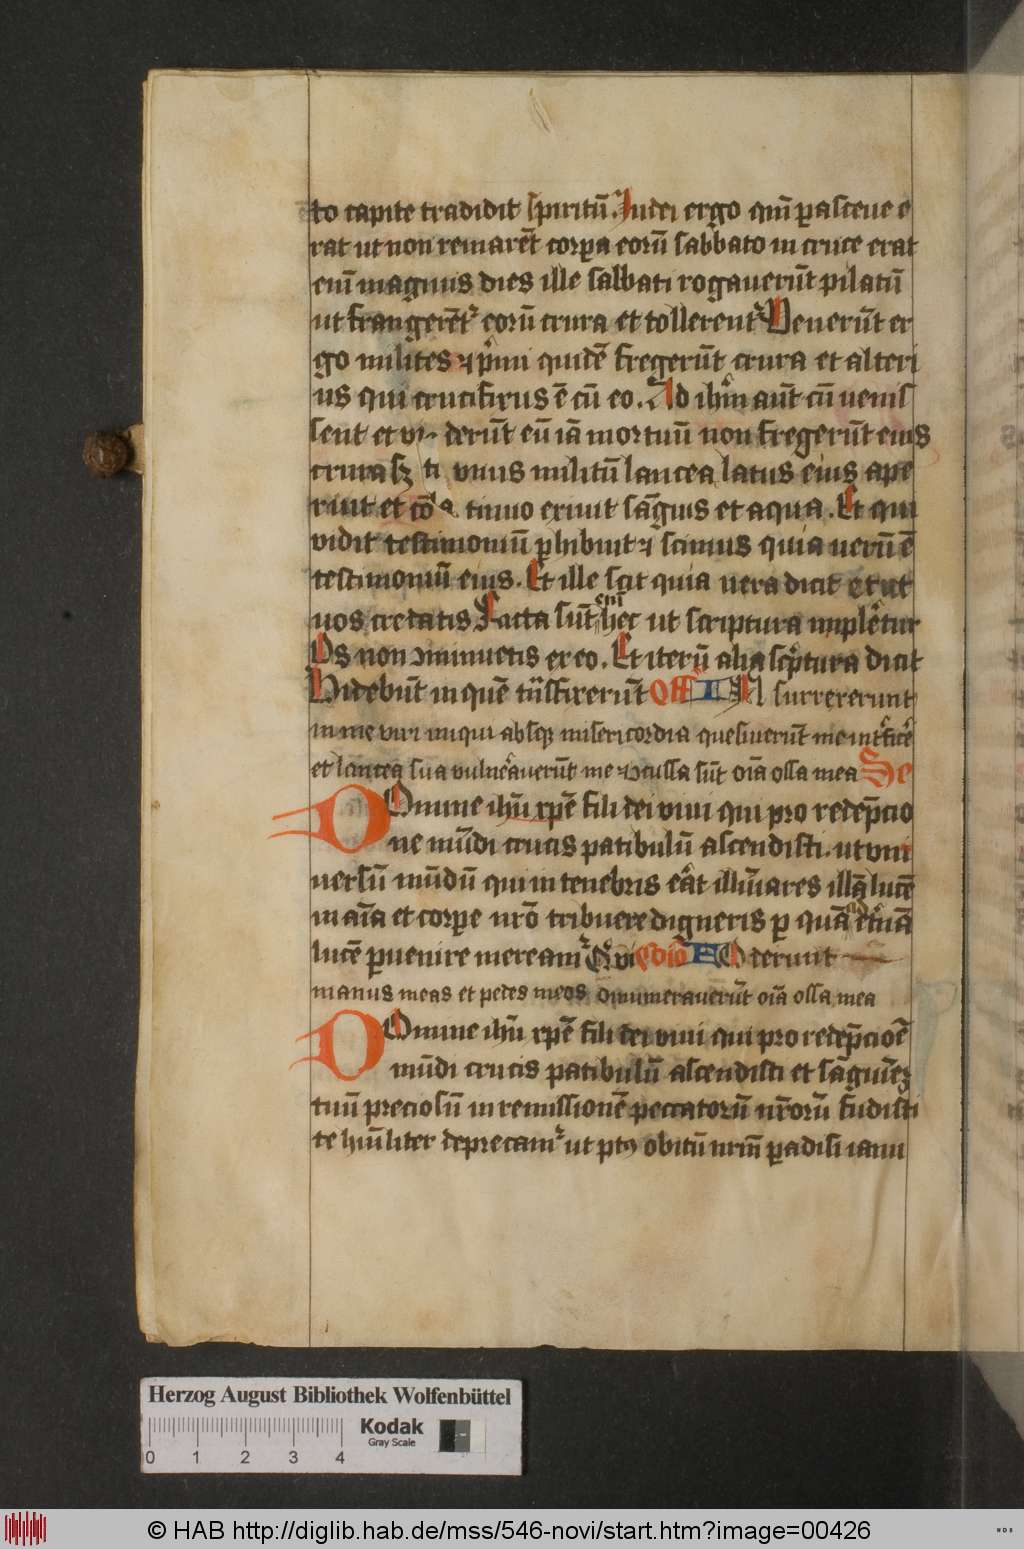 to capite tradidit spiritū. Iudei ergo qm̄ parasceue e
rat ut non remarēt corpa eorū sabbato in cruce erat
enī magnus dies ille sabbati rogauerūt pilatū
ut frangerēt eorū crura et tollerent Venerūt er
go milites et pmi quidē fregerūt crura et alteri
us qui crucifixus ē cū eo. Ad ihm aūt cū uenis
sent et vi derūt eū iā mortuū non fregerūt eius
crura sz ti vnus militū lancea latus eius ape
riut et tinuo exiuit sāguis et aqua. Et qui
vidit testimoniū phibuit et scimus quia uerū ē
testimoniū eius. Et ille scit quia uera dicit et ut
uos credatis Facta sūt eni hec ut scriptura implētur
Os non ɔminuetis ex eo. Et iterū alia scptura dicit
Videbūt in quē tnsfixerūt Off In surrexerunt
in me viri iniqui absque misericordia quesiuerūt me intficē
et lancea sua vulnāuerūt me et ɔcussa sūt oīa ossa mea Se
Domine ihū xpē fili dei viui qui pro redēpcio
ne mūdi crucis patibulū ascendisti. ut vni
uersū mūdū qui in tenebris eāt illumīares illā lucē
in aīa et corpe nrō tribuere digneris p quā ad etnā
lucē puenire mereamr Qui Cōio Foderunt
manus meas et pedes meos dinumerauerūt oīa ossa mea
Domine ihū xpē fili dei viui qui pro redēpcioē
mūdi crucis patibulū ascendisti et sāguinē
tuū preciosū in remissionē peccatorū nrōrū fudisti
te humīliter deprecamr ut pt obitū nrm̄ padisi ianu
Herzog August Bibliothek Wolfenbüttel
Kodak
Gray Scale
0 1 2 3 4
© HAB http://diglib.hab.de/mss/546-novi/start.htm?image=00426